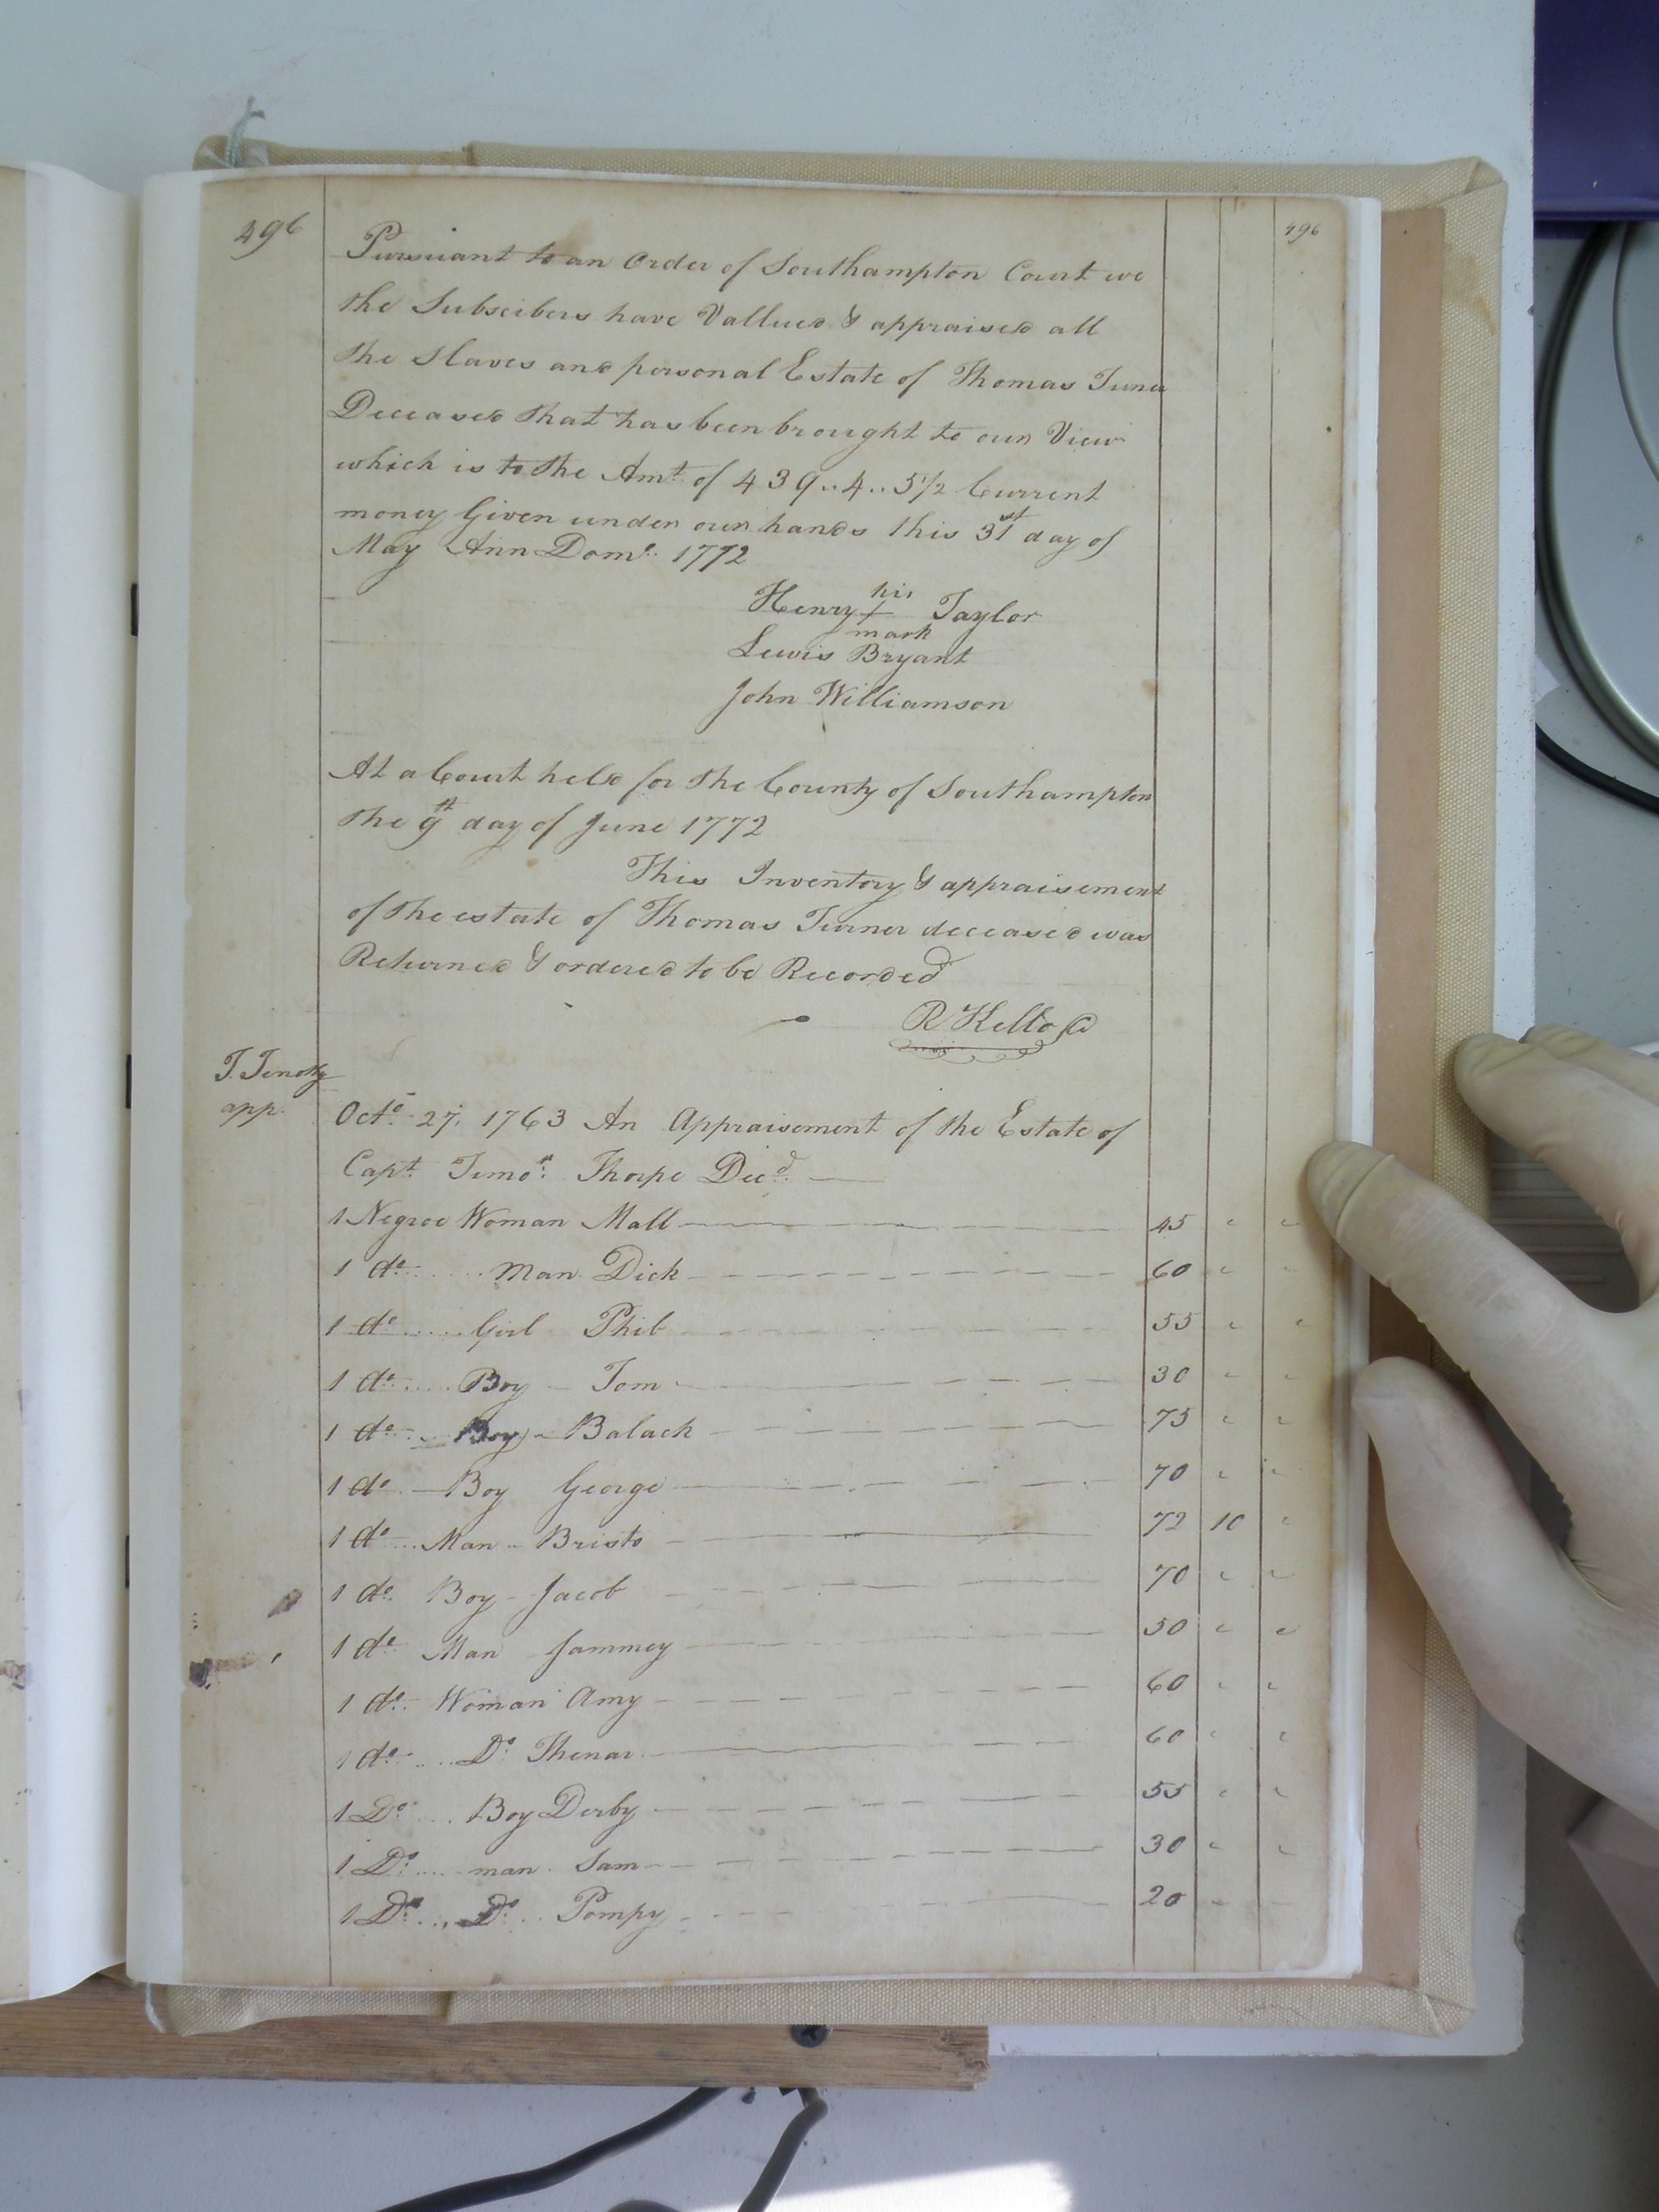 496
496
Pursuant to an Order of Southampton Court we
the Subscibers have Vallued & appraised all
the Slaves and personal Estate of Thomas Turner
Deceased that has been brought to our View
which is to the Amt. of 439..4..5½ Current
money Given under our hands this 31st day of
May Ann Domo. 1772
Henry his + mark Taylor
Lewis Bryant
John Williamson
At a Court held for the County of Southampton
the 9th day of June 1772
This Inventory & appraisement
of the estate of Thomas Turner deceased was
Returned & ordered to be Recorded
R Kello
T. 
app.
Octo. 27, 1763 An Appraisement of the Estate of
Capt. Timo. Thorpe Decd.
1 Negroe Woman Mall 45 " "
1 do. Man Dick 60 " "
1 do. Girl Phib 55 " "
1 do. Boy Tom 30 " "
1 do. Boy Balack 75 " "
1 do. Boy George 70 " "
1 do. Man Bristo 72 10 "
1 do. Boy Jacob 70 " "
1 do. Man Jammey 50 " "
1 do. Woman Amy 60 " "
1 do. Do. Thenar 60 " "
1 Do. Boy Derby 55 " "
1 Do. man Sam 30 " "
1 Do. Do. Pompy 20 - -